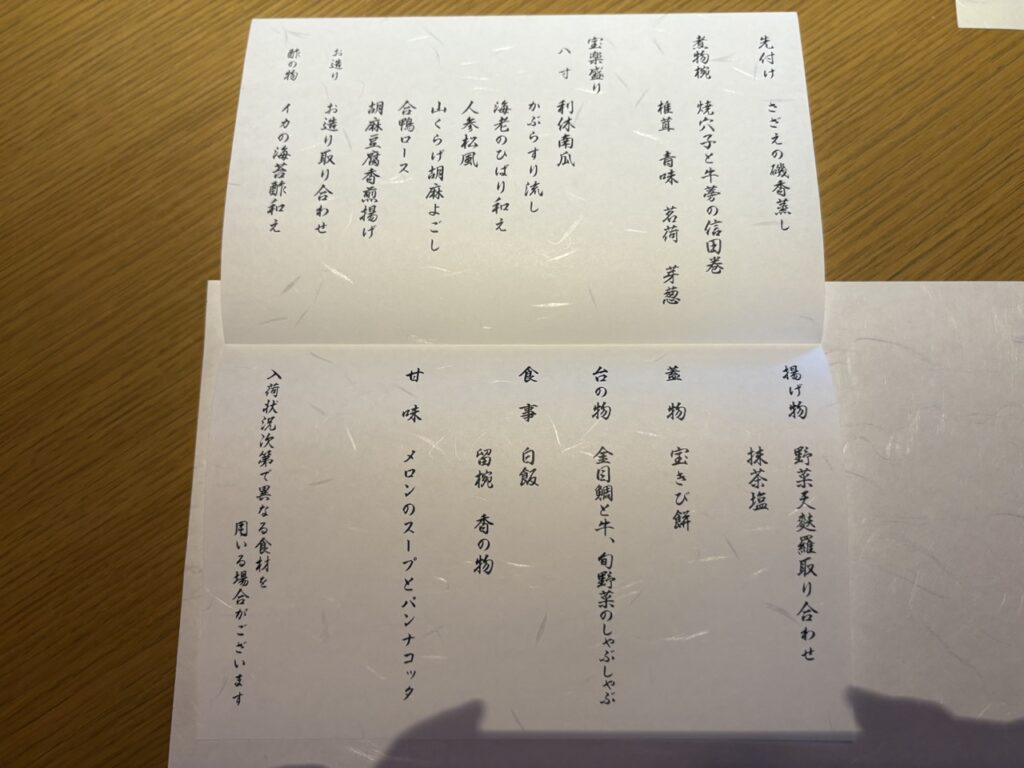 先付け　さざえの磯香蒸し
煮物椀　焼穴子と牛蒡の信田巻
椎茸　青味　茗荷　芽葱
宝楽盛り
八寸　利休南瓜
かぶらすり流し
海老のひばり和え
人参松風
山くらげ胡麻よごし
合鴨ロース
胡麻豆腐香煎揚げ
お造り　お造り取り合わせ
酢の物　イカの海苔酢和え
揚げ物　野菜天麩羅取り合わせ
抹茶塩
蓋物　宝きび餅
台の物　金目鯛と牛、旬野菜のしゃぶしゃぶ
食事　白飯
留椀　香の物
甘味　メロンのスープとパンナコッタ
入荷状況次第で異なる食材を
用いる場合がございます